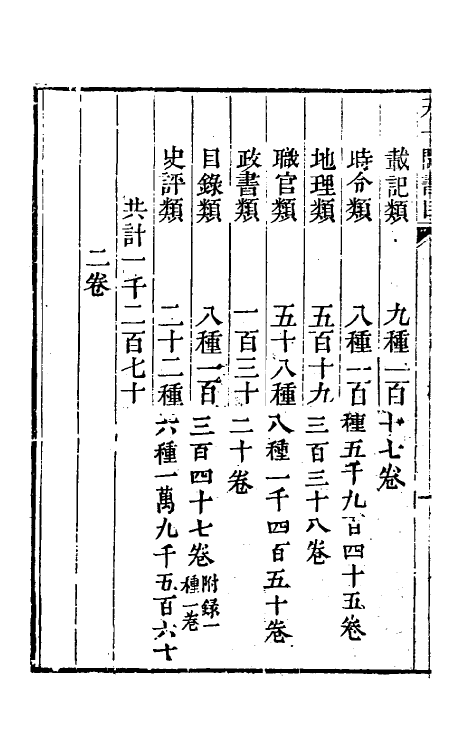 載記類　九種一百十七卷
時令類　八種一百種五千九百四十五卷
地理類　五百十九三百三十八卷
職官類　五十八種八種一千四百五十卷
政書類　一百三十二十卷
目錄類　八種一百三百四十七卷附錄一種一卷
史評類　二十二種六種一萬九千五百六十
共計一千二百七十
二卷